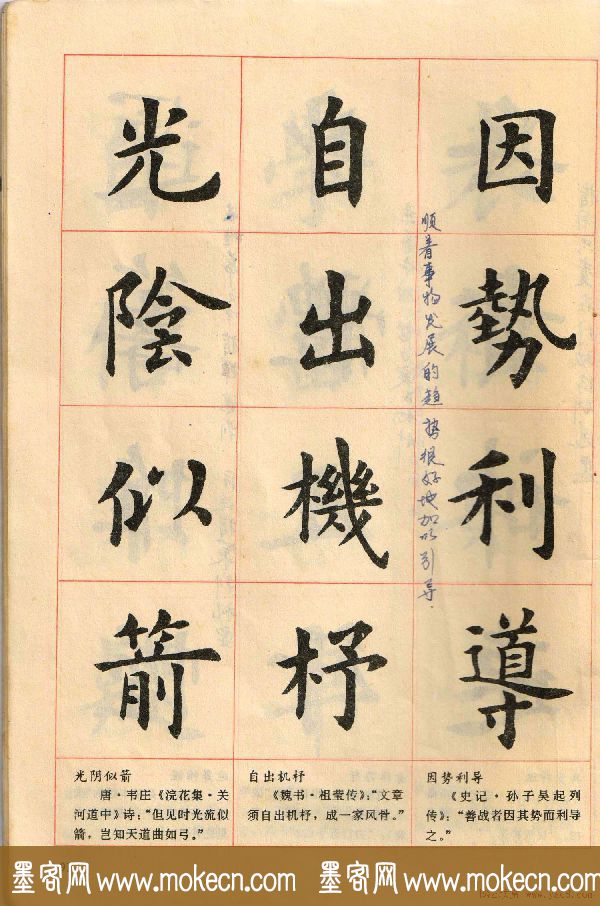 因勢利導
顺着事物发展的趋势很好地加以引导.
自出機杼
光陰似箭
因势利导
《史记·孙子吴起列
传》：“善战者因其势而利导
之。”
自出机杼
《魏书·祖莹传》：“文章
须自出机杼，成一家风骨。”
光阴似箭
唐·韦庄《浣花集·关
河道中》诗：“但见时光流似
箭，岂知天道曲如弓。”
墨客网www.mokecn.com 墨客网www.mokecn.com